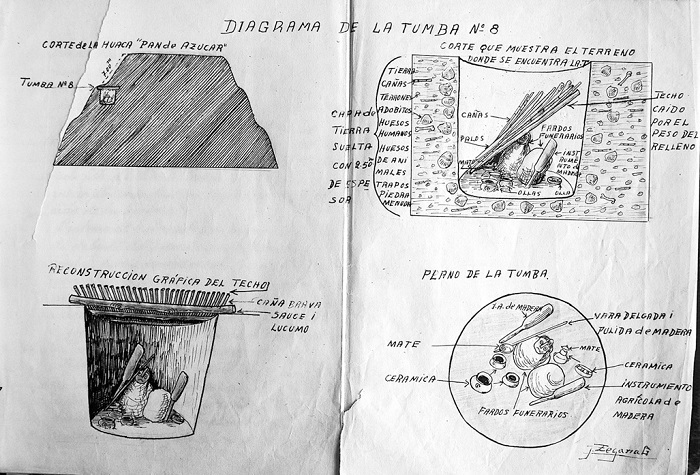 DIAGRAMA DE LA TUMBA Nº 8
CORTE de LA HUACA "PAN de AZUCAR"
TUMBA Nº8
CORTE QUE MUESTRA EL TERRENO
DONDE SE ENCUENTRA LA T.
CAPA de
TIERRA
SUELTA
CON 2.50
DE ESPE
SOR
TIERRA
CAÑAS
TERRONES
ADOBITOS
HUESOS
HUMANOS
HUESOS
DE ANI
MALES
TRAPOS
PIEDRA
MENUDA
CAÑAS
PALOS
MATE
FARDOS
FUNERARIOS
INST
RUME
NTO de
MADERA
OLLAS
OLLA
TECHO
CAIDO
POR EL
PESO DEL
RELLENO
RECONSTRUCCION GRÁFICA DEL TECHO
CAÑA BRAVA
SAUCE i
LUCUMO
PLANO DE LA TUMBA.
I.A. de MADERA
VARA DELGADA i
PULIDA de MADERA
MATE
MATE
CERAMICA
CERAMICA
INSTRUMENTO
AGRÍCOLA de
MADERA
FARDOS FUNERARIOS
Zegarra G